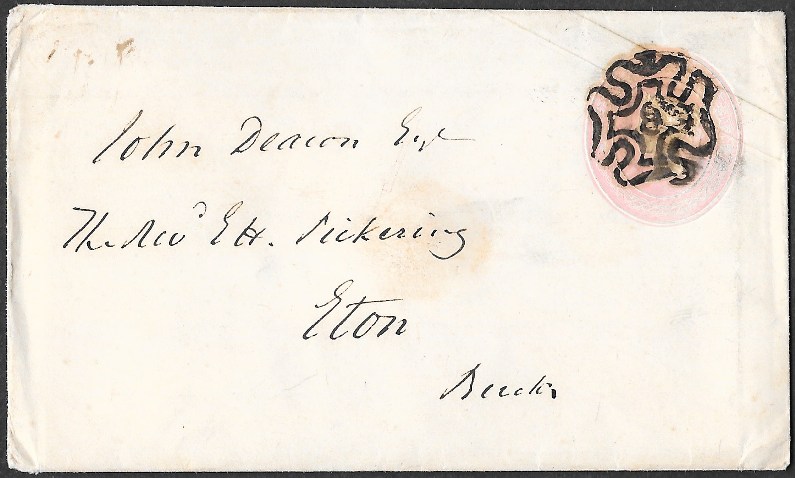 John Deacon Esqr
The Revd E H. Pickering
Eton
Bucks
8